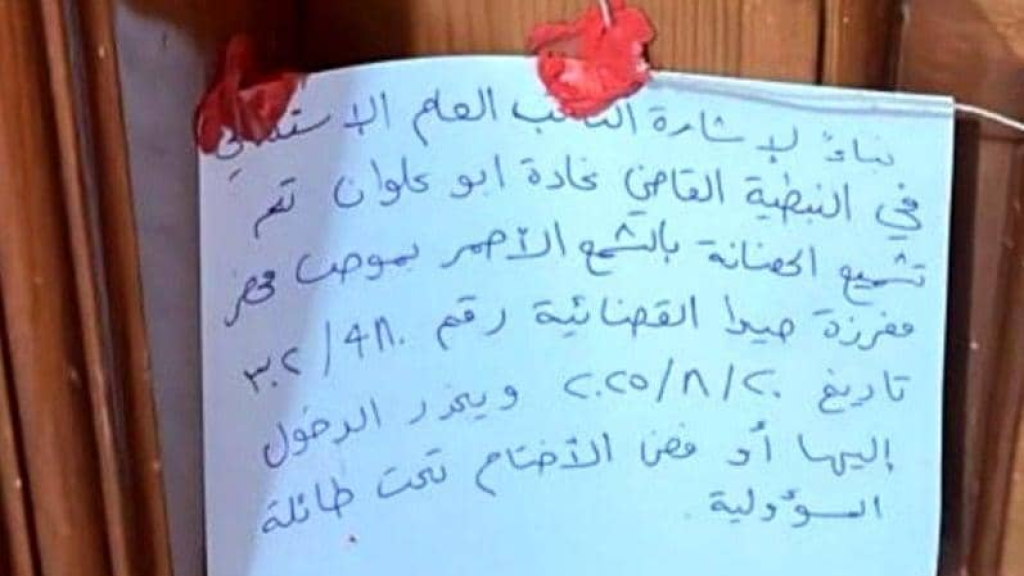 بناءً لإشارة النائب العام الاستئنافي
في النبطية القاضي غادة ابو علوان تم
تشميع الحضانة بالشمع الأحمر بموجب محضر
مفرزة صيدا القضائية رقم ٤٨٠/٣٠٢
تاريخ ٢٠/٨/٢٠٢٥ ويحذر الدخول
إليها أو فض الأختام تحت طائلة
المسؤولية.